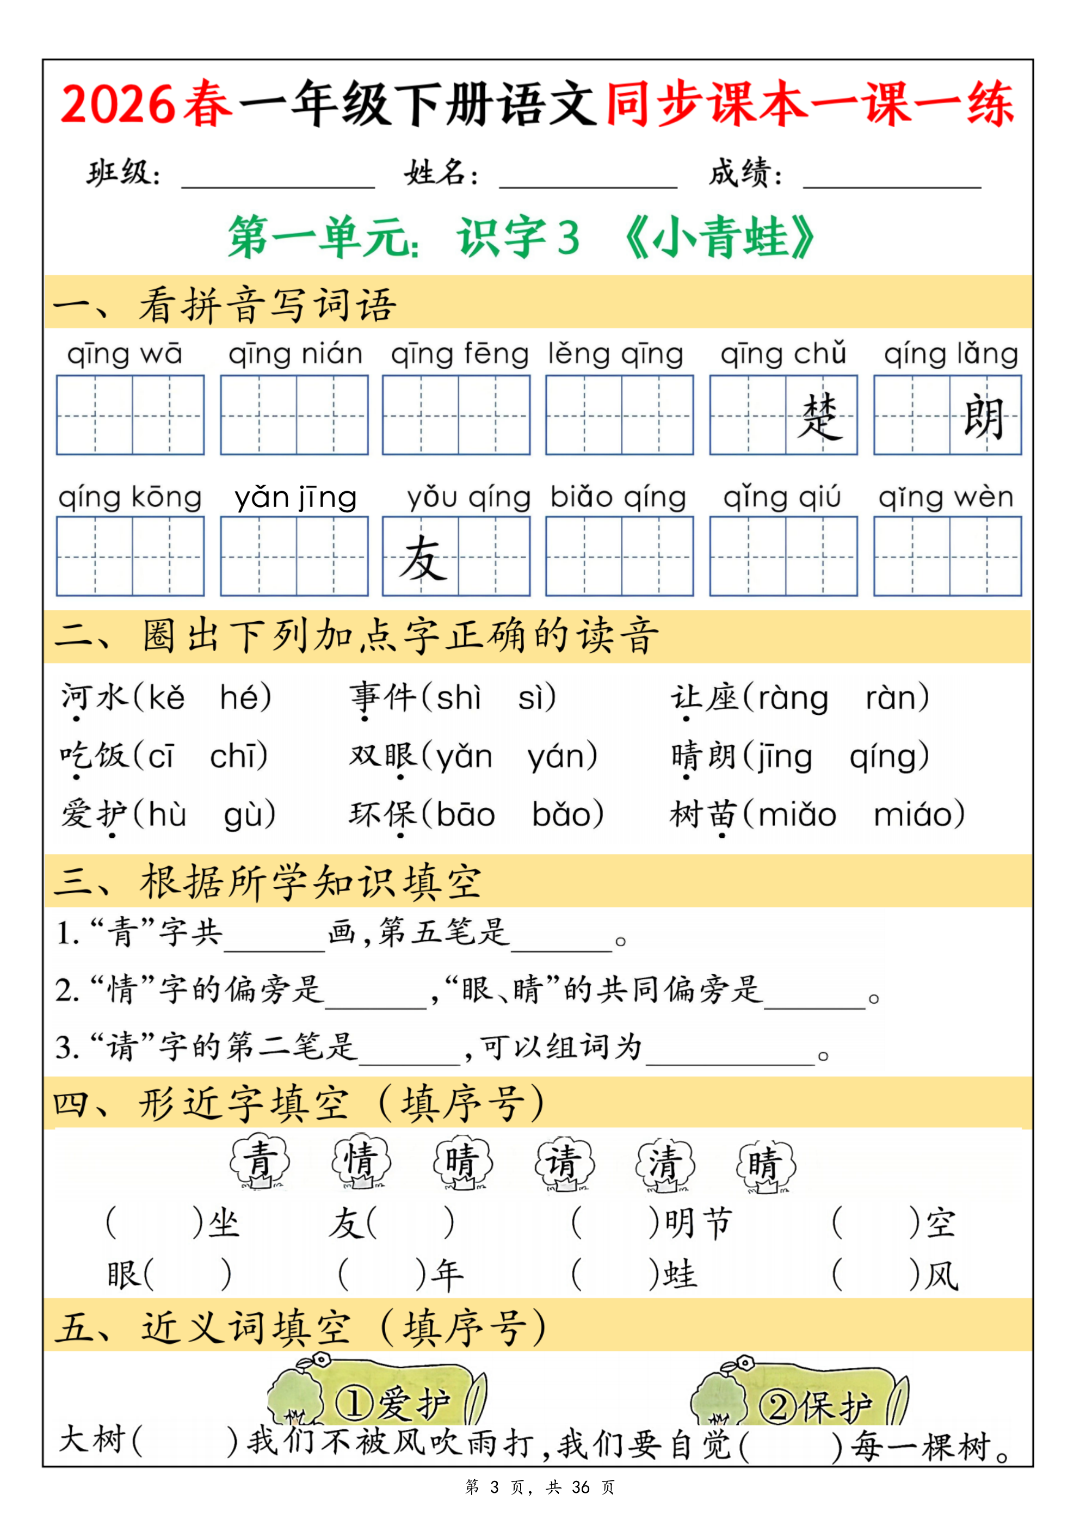 2026春一年级下册语文同步课本一课一练
班级：____________ 姓名：____________ 成绩：____________
第一单元：识字3 《小青蛙》
一、看拼音写词语
qīng wā qīng nián qīng fēng lěng qīng qīng chǔ qíng lǎng
楚 朗
qíng kōng yǎn jīng yǒu qíng biǎo qíng qǐng qiú qǐng wèn
友
二、圈出下列加点字正确的读音
河水(kě hé) 事件(shì sì) 让座(ràng ràn)
吃饭(cī chī) 双眼(yǎn yán) 晴朗(jīng qíng)
爱护(hù gù) 环保(bāo bǎo) 树苗(miǎo miáo)
三、根据所学知识填空
1. “青”字共______画,第五笔是______。
2. “情”字的偏旁是______,“眼、睛”的共同偏旁是______。
3. “请”字的第二笔是______,可以组词为__________。
四、形近字填空（填序号）
青 情 晴 请 清 睛
( )坐 友( ) ( )明节 ( )空
眼( ) ( )年 ( )蛙 ( )风
五、近义词填空（填序号）
①爱护 ②保护
大树( )我们不被风吹雨打,我们要自觉( )每一棵树。
第 3 页，共 36 页